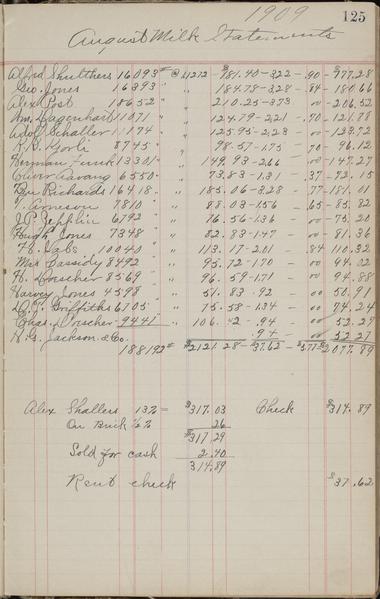 1909 125
August Milk Statements
Alfrd Shulthers 16093# @ 1.1212 - $181.40 - 3.22 - .90 - $177.28
Geo. Jones 16393 " " 184.78 - 3.28 - .84 - 180.66
Alex Post 18652 " " 210.25 - 3.73 - 00 - 206.52
Wm. Dagenhart 11071 " " 124.79 - 2.21 - .70 - 121.88
Adolf Schaller 11174 " " 125.95 - 2.23 - 00 - 123.72
8745 " " 98.57 - 1.75 - 70 - 96.12
Herman Funk 13301 " " 149.93 - 2.66 - 00 - 147.27
Oliver Aavang 6550 " " 73.83 - 1.31 - .37 - 72.15
Ben Richards 16418 " " 185.06 - 3.28 - .77 - 181.01
T. Arneson 7810 " " 88.03 - 1.56 - .65 - 85.82
J.P. Zepplin 6792 " " 76.56 - 1.36 - 00 - 75.20
Hugh Jones 7348 " " 82.83 - 1.47 - 00 - 81.36
10040 " " 113.17 - 2.01 - .84 - 110.32
Mrs Cassidy 8492 " " 95.72 - 1.70 - 00 - 94.02
H. Dorscher 8569 " " 96.59 - 1.71 - 00 - 94.88
Harvey Jones 4598 " " 51.83 - .92 - 00 - 50.91
Griffiths 6105 " " 75.58 - 1.34 - 00 - 74.24
Chas. Dorscher 9441 " 106.42 - .94 - 00 - 52.27
R.G. Jackson & Co. .94 - 00 52.27
188192# $2121.28 - 37.62 - $5.77 - $2077.89
Alex Shallers 13% = $317.03 Check $314.89
On Brick 1/6% .26
$317.29
Sold for cash 2.40
314.89
Rent check $37.62